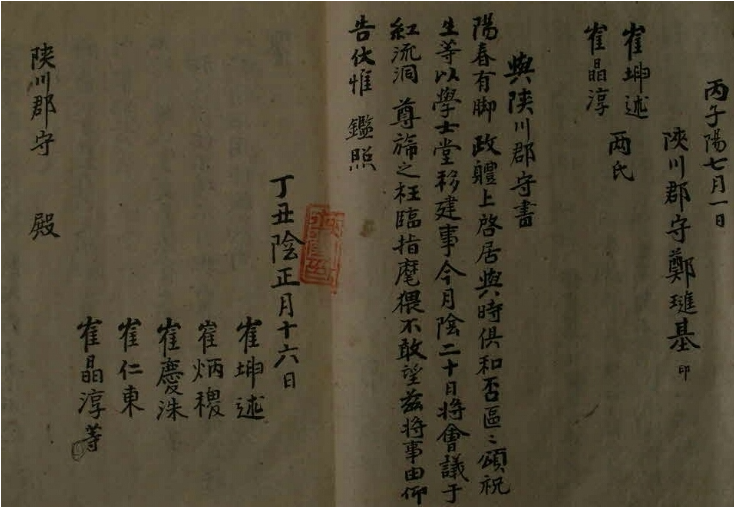 丙子陽七月一日
陜川郡守鄭璡基 印
崔坤述
崔晶淳 兩氏
與陜川郡守書
陽春有脚 政軆上啓居與時俱和否區〻頌祝
生等以學士堂移建事今月陰二十日將會議于
紅流洞 尊旆之枉臨指麾猥不敢望玆將事由仰
告伏惟 鑑照
丁丑陰正月十六日
崔坤述
崔炳稷
崔慶洙
崔仁東
崔晶淳等
陜川郡守 殿